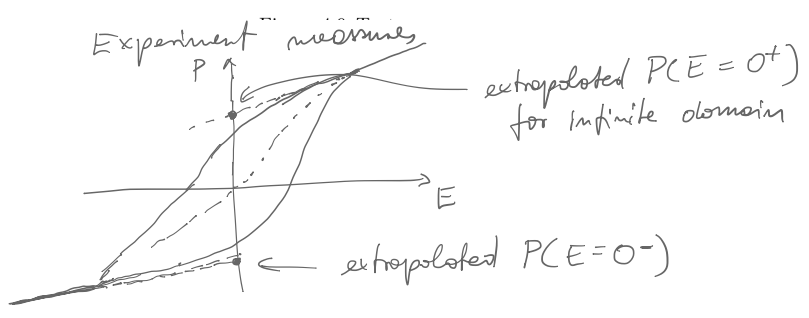 Experiment measures
P
extrapolated P(E = 0⁺)
for infinite domain
E
extrapolated P(E=0⁻)